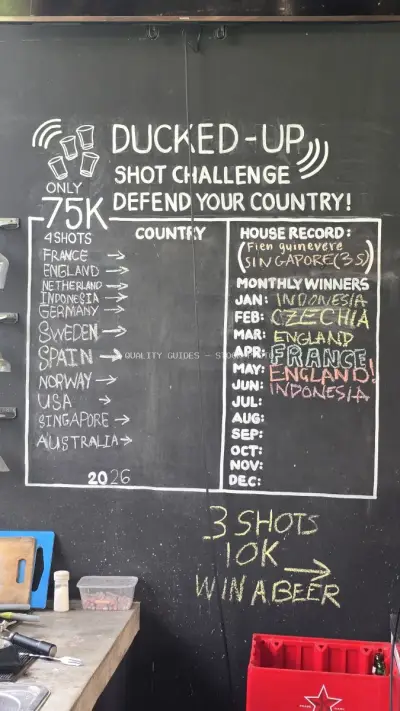 DUCKED-UP
SHOT CHALLENGE
DEFEND YOUR COUNTRY!
ONLY
75K
4 SHOTS
COUNTRY
FRANCE →
ENGLAND →
NETHERLAND →
INDONESIA →
GERMANY →
SWEDEN →
SPAIN →
NORWAY →
USA →
SINGAPORE →
AUSTRALIA →
2026
HOUSE RECORD:
(Fien guinevere
SINGAPORE (3S))
MONTHLY WINNERS
JAN: INDONESIA
FEB: CZECHIA
MAR: ENGLAND
APR: FRANCE
MAY: ENGLAND!
JUN: INDONESIA
JUL:
AUG:
SEP:
OCT:
NOV:
DEC:
3 SHOTS
10K →
WIN A BEER